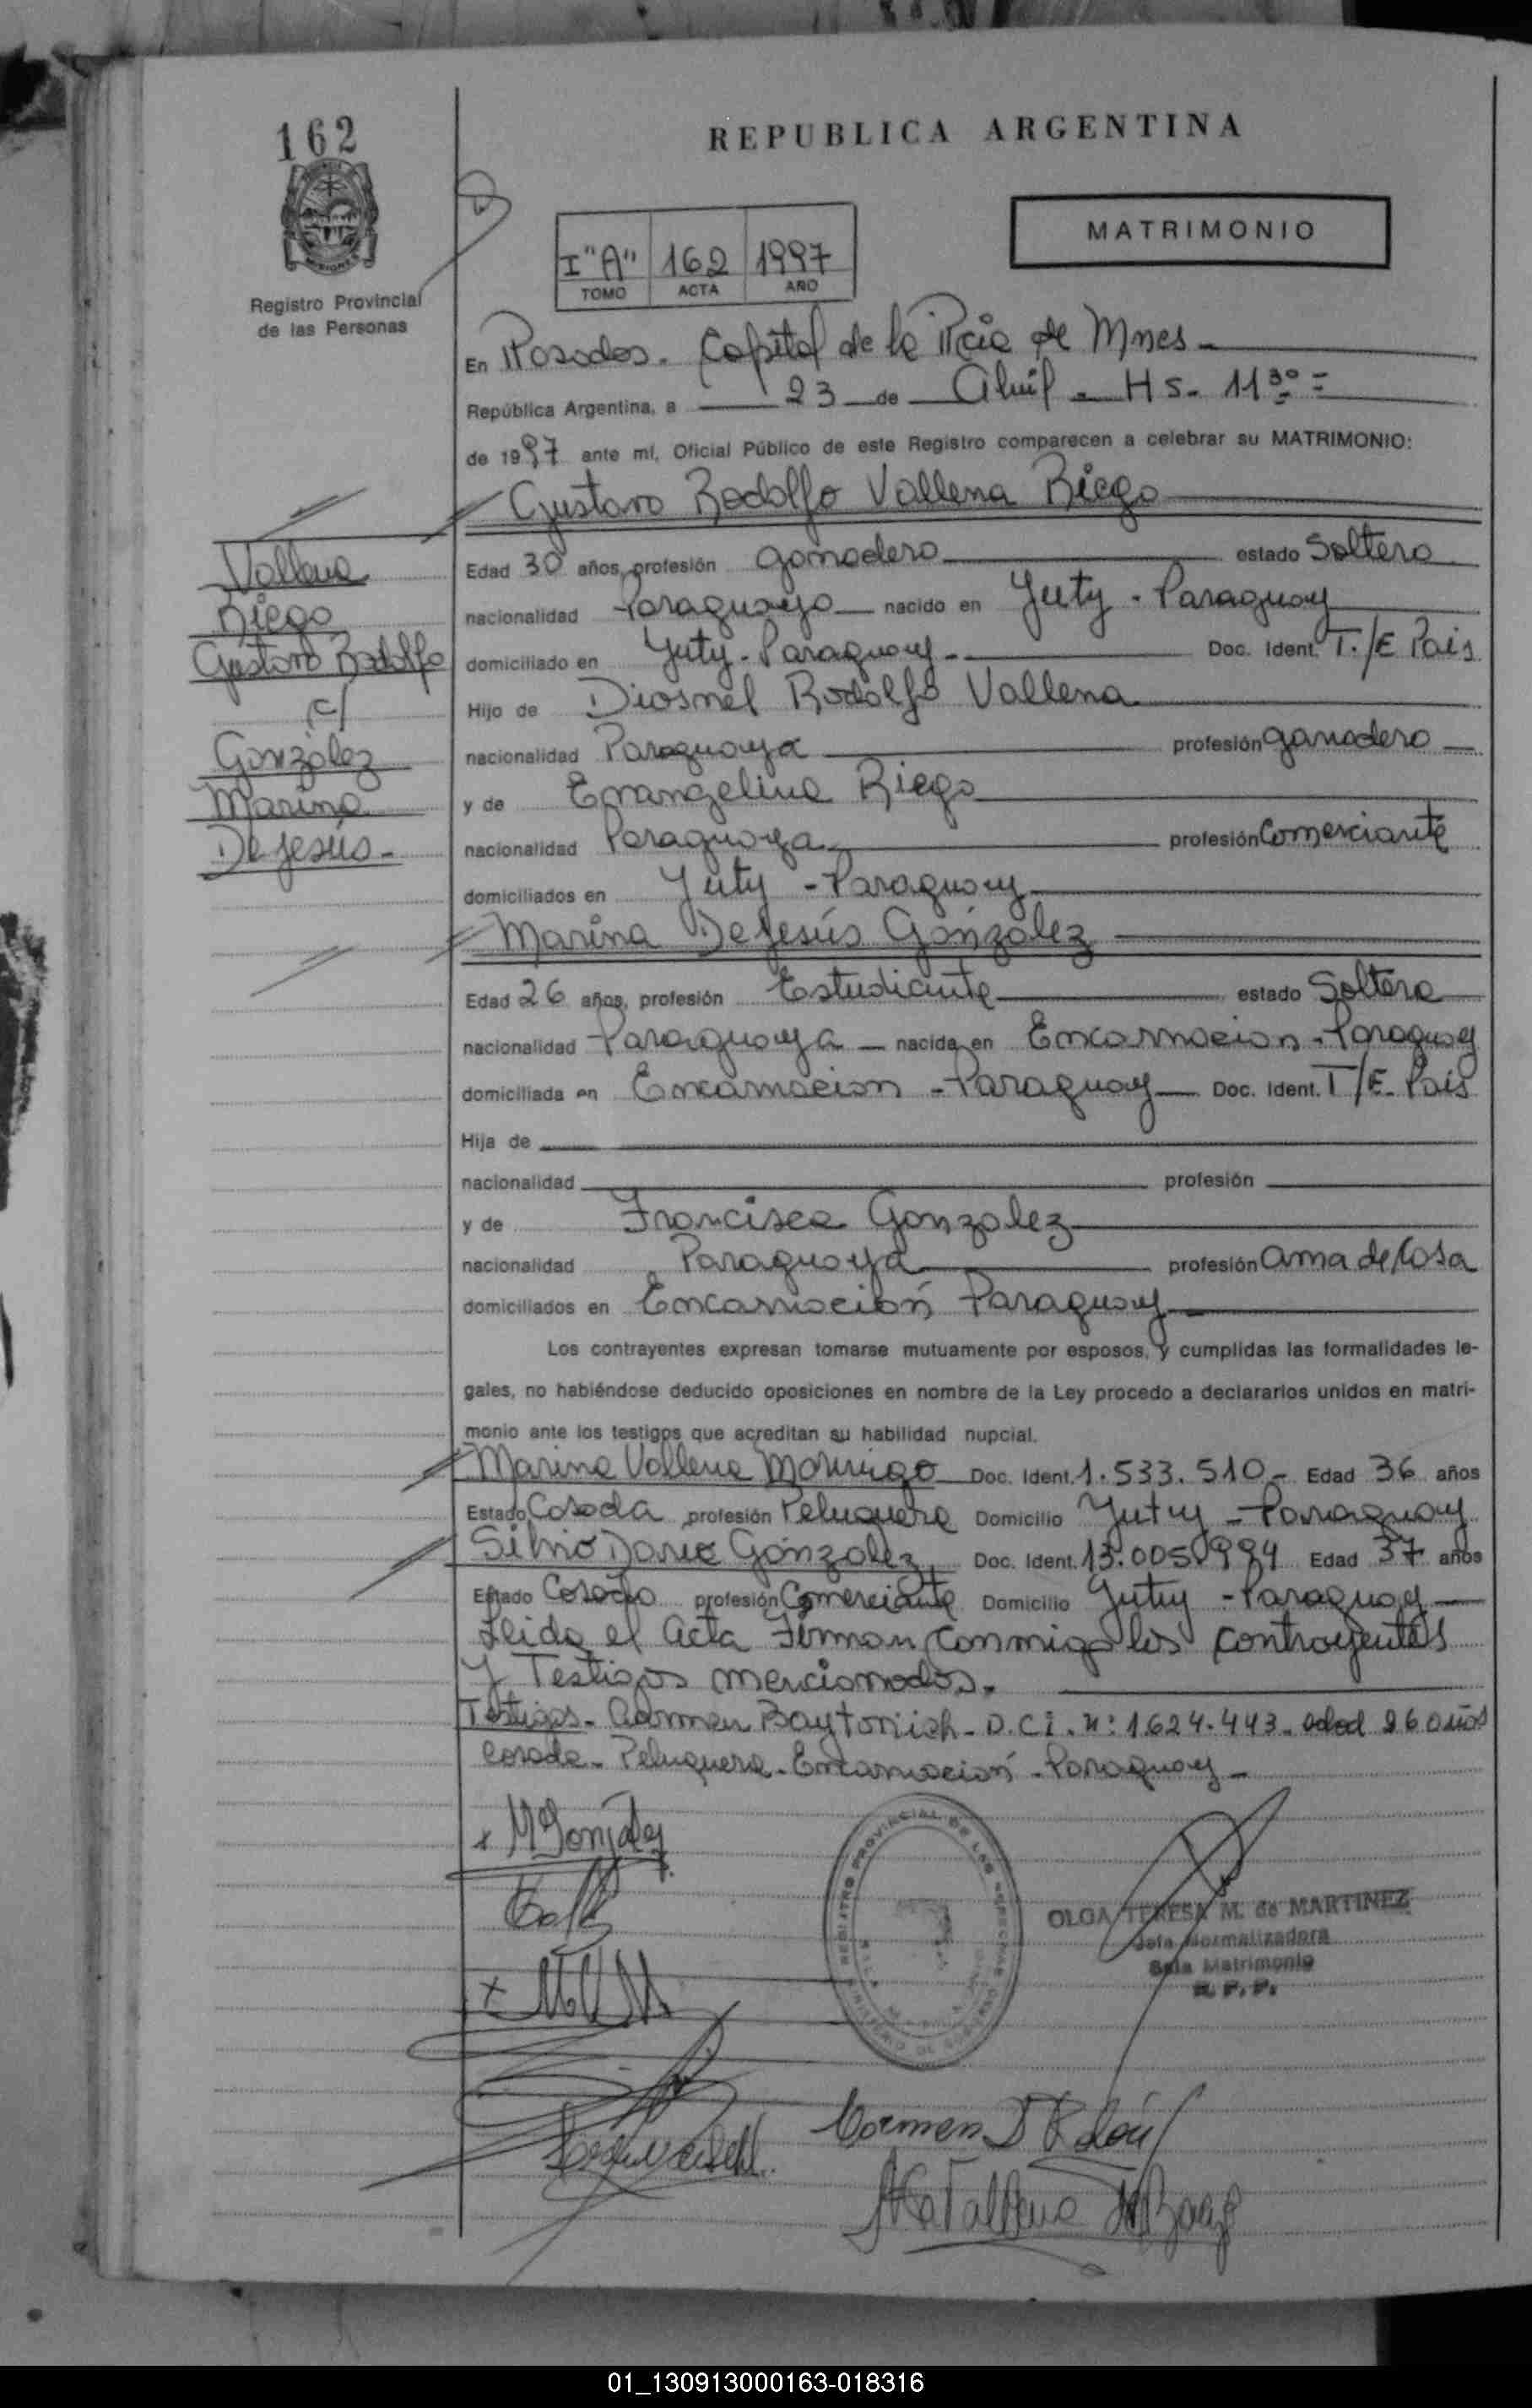 162
REPUBLICA ARGENTINA
MATRIMONIO
I "A" 162 1997
TOMO ACTA AÑO
MISIONES
Registro Provincial
de las Personas
En Posadas. Capital de la Pcia de Mnes
República Argentina, a 23 de Abril. Hs. 11 30
de 1997 ante mí, Oficial Público de este Registro comparecen a celebrar su MATRIMONIO:
Gustavo Rodolfo Vallena Riego
Vallena
Riego
Gustavo Rodolfo
c/
González
Marina
De Jesús.-
Edad 30 años, profesión ganadero estado Soltero
nacionalidad Paraguayo nacido en Yuty - Paraguay
domiciliado en Yuty - Paraguay Doc. Ident. T./E País
Hijo de Diosnel Rodolfo Vallena
nacionalidad Paraguaya profesión ganadero
y de Evangelina Riego
nacionalidad Paraguaya profesión Comerciante
domiciliados en Yuty - Paraguay
Marina De Jesús González
Edad 26 años, profesión Estudiante estado Soltera
nacionalidad Paraguaya nacida en Encarnacion - Paraguay
domiciliada en Encarnacion - Paraguay Doc. Ident. T/E. País
Hija de
nacionalidad profesión
y de Francisca Gonzalez
nacionalidad Paraguaya profesión ama de Casa
domiciliados en Encarnación Paraguay
Los contrayentes expresan tomarse mutuamente por esposos, y cumplidas las formalidades le-
gales, no habiéndose deducido oposiciones en nombre de la Ley procedo a declararlos unidos en matri-
monio ante los testigos que acreditan su habilidad nupcial.
Marina Vallena Doc. Ident. 1.533.510.- Edad 36 años
Estado Casada profesión Peluquera Domicilio Yuty - Paraguay
Silvio González Doc. Ident. 13.005.994 Edad 37 años
Estado Casado profesión Comerciante Domicilio Yuty - Paraguay
Leida el Acta Firman Conmigo los contrayentes
y Testigos mencionados.
Testigos - Carmen D.C.I. n: 1.624.443. edad 26 años
casada - Peluquera - Encarnación - Paraguay
M Gonzalez
REGISTRO PROVINCIAL DE LAS PERSONAS
OLGA TERESA M. de MARTINEZ
Jefa Normalizadora
Sala Matrimonio
R. P. P.
Carmen
01_130913000163-018316